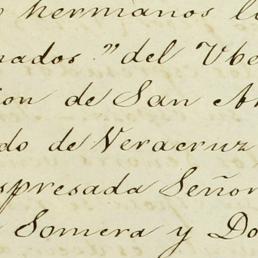 hermanos
nados." del Ube
ion de San An
do de Veracruz
spresada Señor
Somera y Do